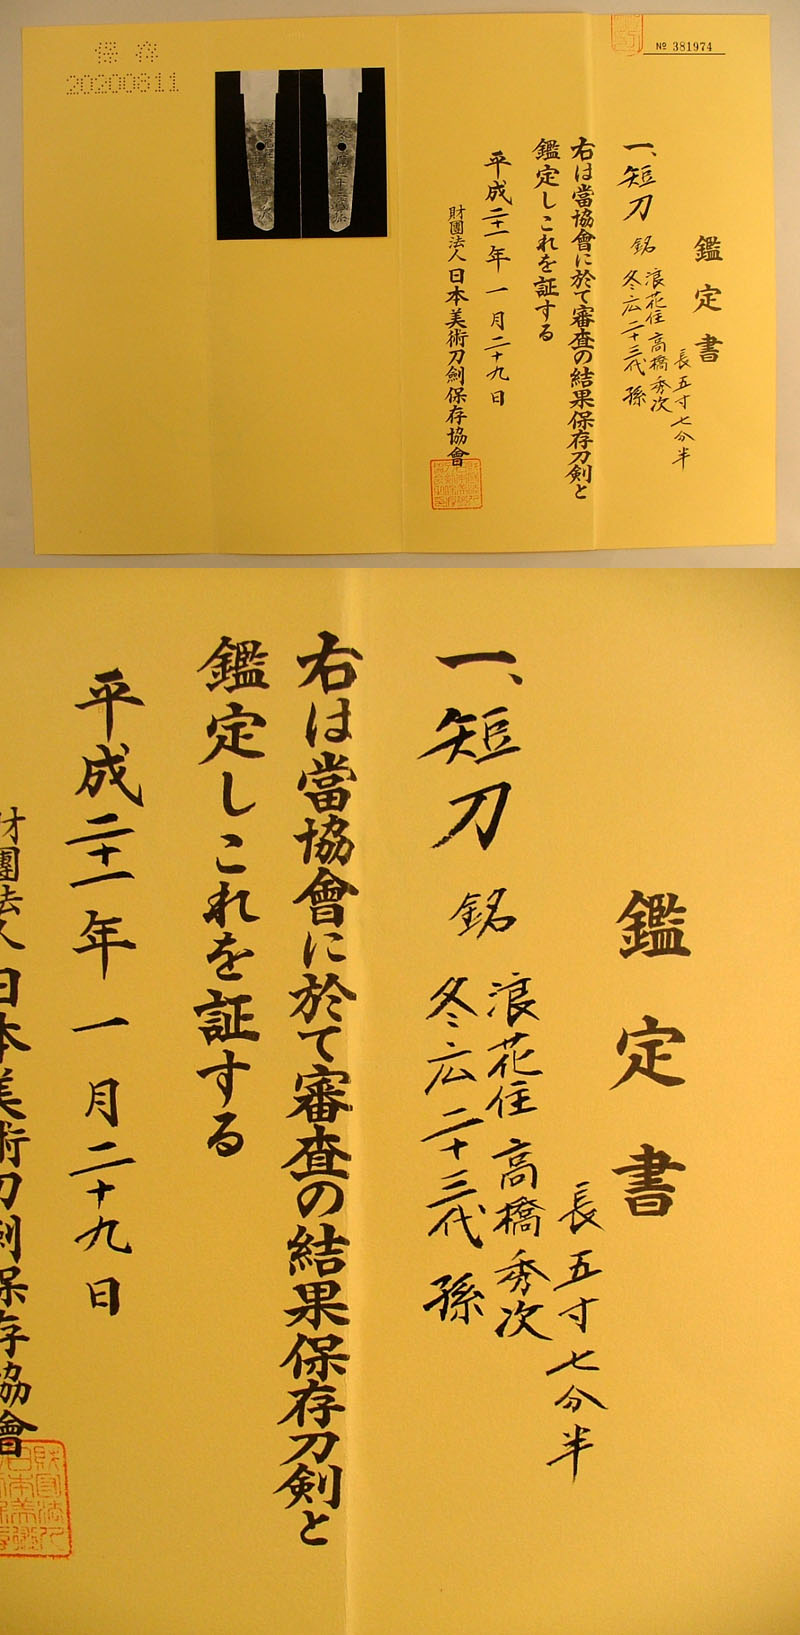 保存
20200811
№ 381974
鑑定書
長五寸七分半
一、短刀 銘 浪花住高橋秀次
冬広二十三代孫
右は當協會に於て審査の結果保存刀剣と
鑑定しこれを証する
平成二十一年一月二十九日
財團法人日本美術刀劍保存協會
鑑定書
長五寸七分半
一、短刀 銘 浪花住高橋秀次
冬広二十三代孫
右は當協會に於て審査の結果保存刀剣と
鑑定しこれを証する
平成二十一年一月二十九日
財團法人日本美術刀劍保存協會